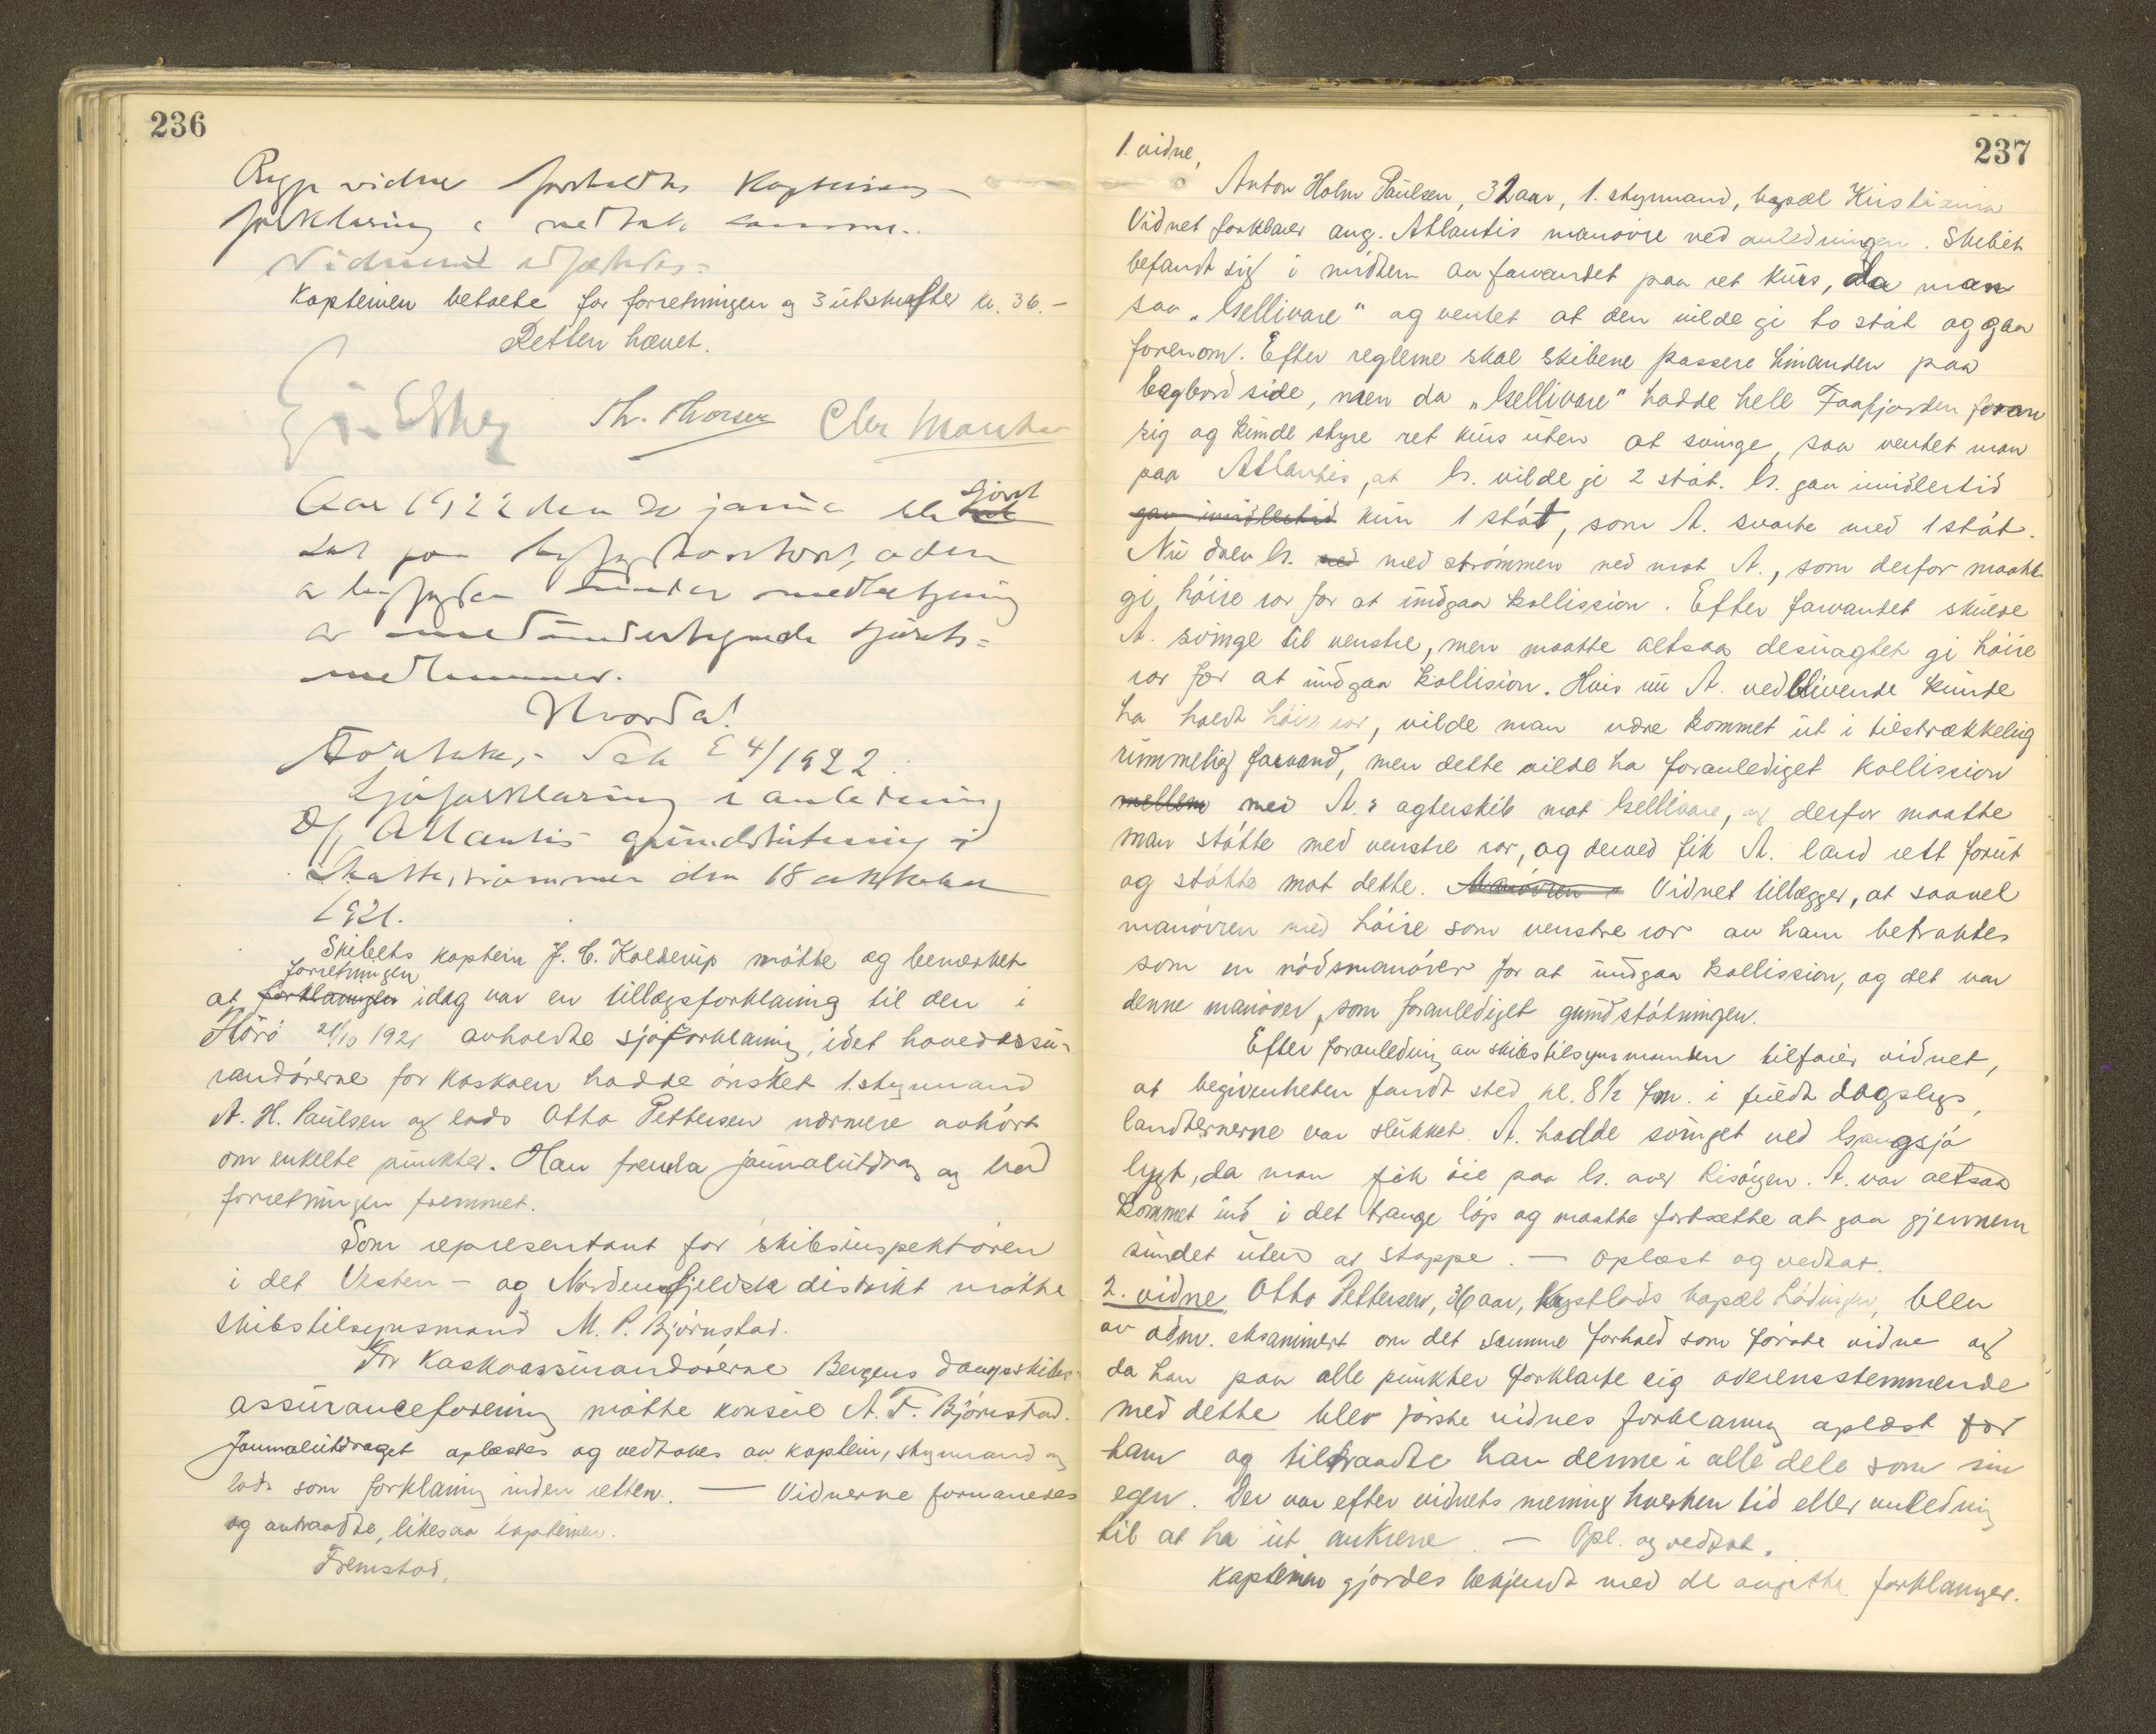 236
Begge vidner forholdtes kapteinens
forklaring & vedtok samme.
Vidnerne
Kapteinen betalte for forretningen og 3 utskrifter kr. 36.-
Retten hævet.
Th. Thorsen
Aar 1922 den 20 januar blev sjøret
sat paa byfogdkontoret, adm
av byfogden under medbetjening
av medundertegnede sjørets=
medlemmer.
Hvorda!
Foretokes Sak E 4/1922.
Sjøforklaring i anledning
D/S Atlantis grundstøtning i
den 18 oktober
1921.
Skibets kaptein J. C. Kolderup møtte og bemerket
at forklaringen forretningen idag var en tillægsforklaring til den i
21/10 1921 avholdte sjøforklaring, idet hovedassu-
randørerne for kaskoen hadde ønsket 1. styrmand
A. H. Paulsen og lods Otto Pettersen nærmere avhørt
om enkelte punkter. Han fremla journalutdrag og bad
forretningen fremmet.
Som representant for skibsinspektøren
i det Vesten- og Nordenfjeldske distrikt møtte
skibstilsynsmand M. P. Bjørnstad.
For kaskoassurandørerne Bergens Dampskibs-
assuranceforening møtte konsul A. F. Bjørnstad.
Journalutdraget oplæstes og vedtokes av kaptein, styrmand og
lods som forklaring inden retten. — Vidnerne formanedes
og avtraadte, likesaa kapteinen.
Fremstod,
237
1. vidne,
Anton Holm Paulsen, 32 aar, 1. styrmand, bopæl Kristiania
Vidnet forklarer ang. Atlantis manøvre ved anledningen. Skibet
befandt sig i midten av farvandet paa ret kurs, da man
saa "Gellivare" og ventet at den vilde gi to støt og gaa
forenom. Efter reglerne skal skibene passere hinanden paa
bagbord side, men da "Gellivare" hadde hele Taafjorden foran
sig og kunde styre ret kurs uten at svinge, saa ventet man
paa Atlantis, at G. vilde gi 2 støt. G. gav imidlertid
gav imidlertid kun 1 støt, som A. svarte med 1 støt.
Nu drev G. ned med strømmen ned mot A., som derfor maatte
gi høire ror for at undgaa kollission. Efter farvandet skulde
A. svinge til venstre, men maatte altsaa desuagtet gi høire
ror for at undgaa kollision. Hvis nu A. vedblivende kunde
ha holdt høire ror, vilde man være kommet ut i tilstrækkelig
rummelig farvand, men dette vilde ha foranlediget kollission
mellem med A.s agterskib mot Gellivare, og derfor maatte
man støtte med venstre ror, og derved fik A. land rett forut
og støtte mot dette. Manøvren Vidnet tillægger, at saavel
manøvren med høire som venstre ror av ham betraktes
som en nødsmanøver for at undgaa kollission, og det var
denne manøver, som foranlediget grundstøtningen.
Efter foranledning av skibstilsynsmanden tilføier vidnet,
at begivenheten fandt sted kl. 8½ fm. i fuldt dagslys,
landternerne var slukket. A. hadde svinget ved Gangsjø
lygt, da man fik øie paa G. over Risøigen. A. var altsaa
kommet ind i det trange løp og maatte fortsætte at gaa gjennem
sundet uten at stoppe. — Oplæst og vedtat.
2. vidne Otto Pettersen, 36 aar, kystlods bopæl Lødingen, blev
av adm. eksaminert om det samme forhold som første vidne og
da han paa alle punkter forklarte sig overensstemmende
med dette blev første vidnes forklaring oplæst for
ham og tiltraadte han denne i alle dele som sin
egen. Der var efter vidnets mening hverken tid eller anledning
til at ha ut ankrene. — Opl. og vedtat.
Kapteinen gjordes bekjendt med de avgitte forklaringer.